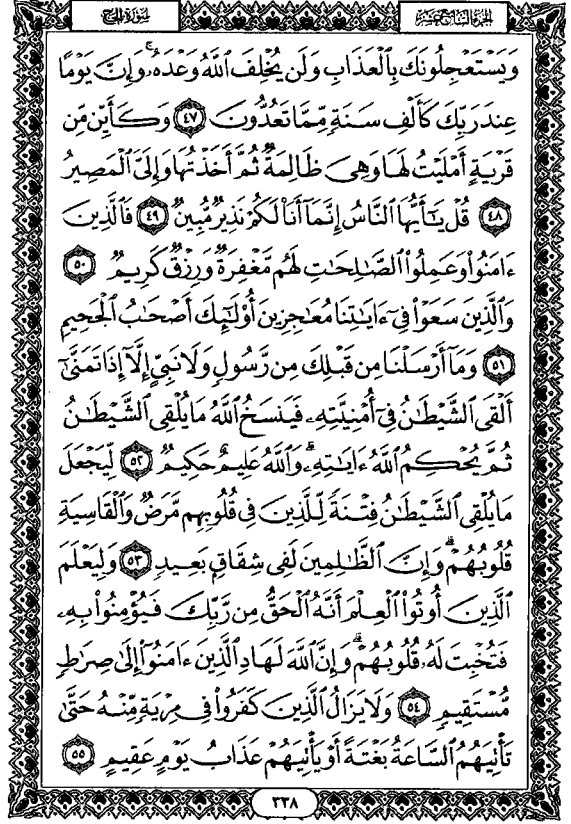 الجزء السابع عشر
سورة الحج
وَيَسْتَعْجِلُونَكَ بِالْعَذَابِ وَلَن يُخْلِفَ اللَّهُ وَعْدَهُۥ ۚ وَإِنَّ يَوْمًا
عِندَ رَبِّكَ كَأَلْفِ سَنَةٍ مِّمَّا تَعُدُّونَ ٤٧ وَكَأَيِّن مِّن
قَرْيَةٍ أَمْلَيْتُ لَهَا وَهِىَ ظَالِمَةٌ ثُمَّ أَخَذْتُهَا وَإِلَىَّ الْمَصِيرُ
٤٨ قُلْ يَـٰٓأَيُّهَا النَّاسُ إِنَّمَآ أَنَا۠ لَكُمْ نَذِيرٌ مُّبِينٌ ٤٩ فَالَّذِينَ
ءَامَنُوا۟ وَعَمِلُوا۟ الصَّـٰلِحَـٰتِ لَهُم مَّغْفِرَةٌ وَرِزْقٌ كَرِيمٌ ٥٠
وَالَّذِينَ سَعَوْا۟ فِىٓ ءَايَـٰتِنَا مُعَـٰجِزِينَ أُو۟لَـٰٓئِكَ أَصْحَـٰبُ الْجَحِيمِ
٥١ وَمَآ أَرْسَلْنَا مِن قَبْلِكَ مِن رَّسُولٍ وَلَا نَبِىٍّ إِلَّآ إِذَا تَمَنَّىٰٓ
أَلْقَى الشَّيْطَـٰنُ فِىٓ أُمْنِيَّتِهِۦ فَيَنسَخُ اللَّهُ مَا يُلْقِى الشَّيْطَـٰنُ
ثُمَّ يُحْكِمُ اللَّهُ ءَايَـٰتِهِۦ ۗ وَاللَّهُ عَلِيمٌ حَكِيمٌ ٥٢ لِّيَجْعَلَ
مَا يُلْقِى الشَّيْطَـٰنُ فِتْنَةً لِّلَّذِينَ فِى قُلُوبِهِم مَّرَضٌ وَالْقَاسِيَةِ
قُلُوبُهُمْ ۗ وَإِنَّ الظَّـٰلِمِينَ لَفِى شِقَاقٍ بَعِيدٍ ٥٣ وَلِيَعْلَمَ
الَّذِينَ أُوتُوا۟ الْعِلْمَ أَنَّهُ الْحَقُّ مِن رَّبِّكَ فَيُؤْمِنُوا۟ بِهِۦ
فَتُخْبِتَ لَهُۥ قُلُوبُهُمْ ۗ وَإِنَّ اللَّهَ لَهَادِ الَّذِينَ ءَامَنُوٓا۟ إِلَىٰ صِرَٰطٍ
مُّسْتَقِيمٍ ٥٤ وَلَا يَزَالُ الَّذِينَ كَفَرُوا۟ فِى مِرْيَةٍ مِّنْهُ حَتَّىٰ
تَأْتِيَهُمُ السَّاعَةُ بَغْتَةً أَوْ يَأْتِيَهُمْ عَذَابُ يَوْمٍ عَقِيمٍ ٥٥
٣٣٨